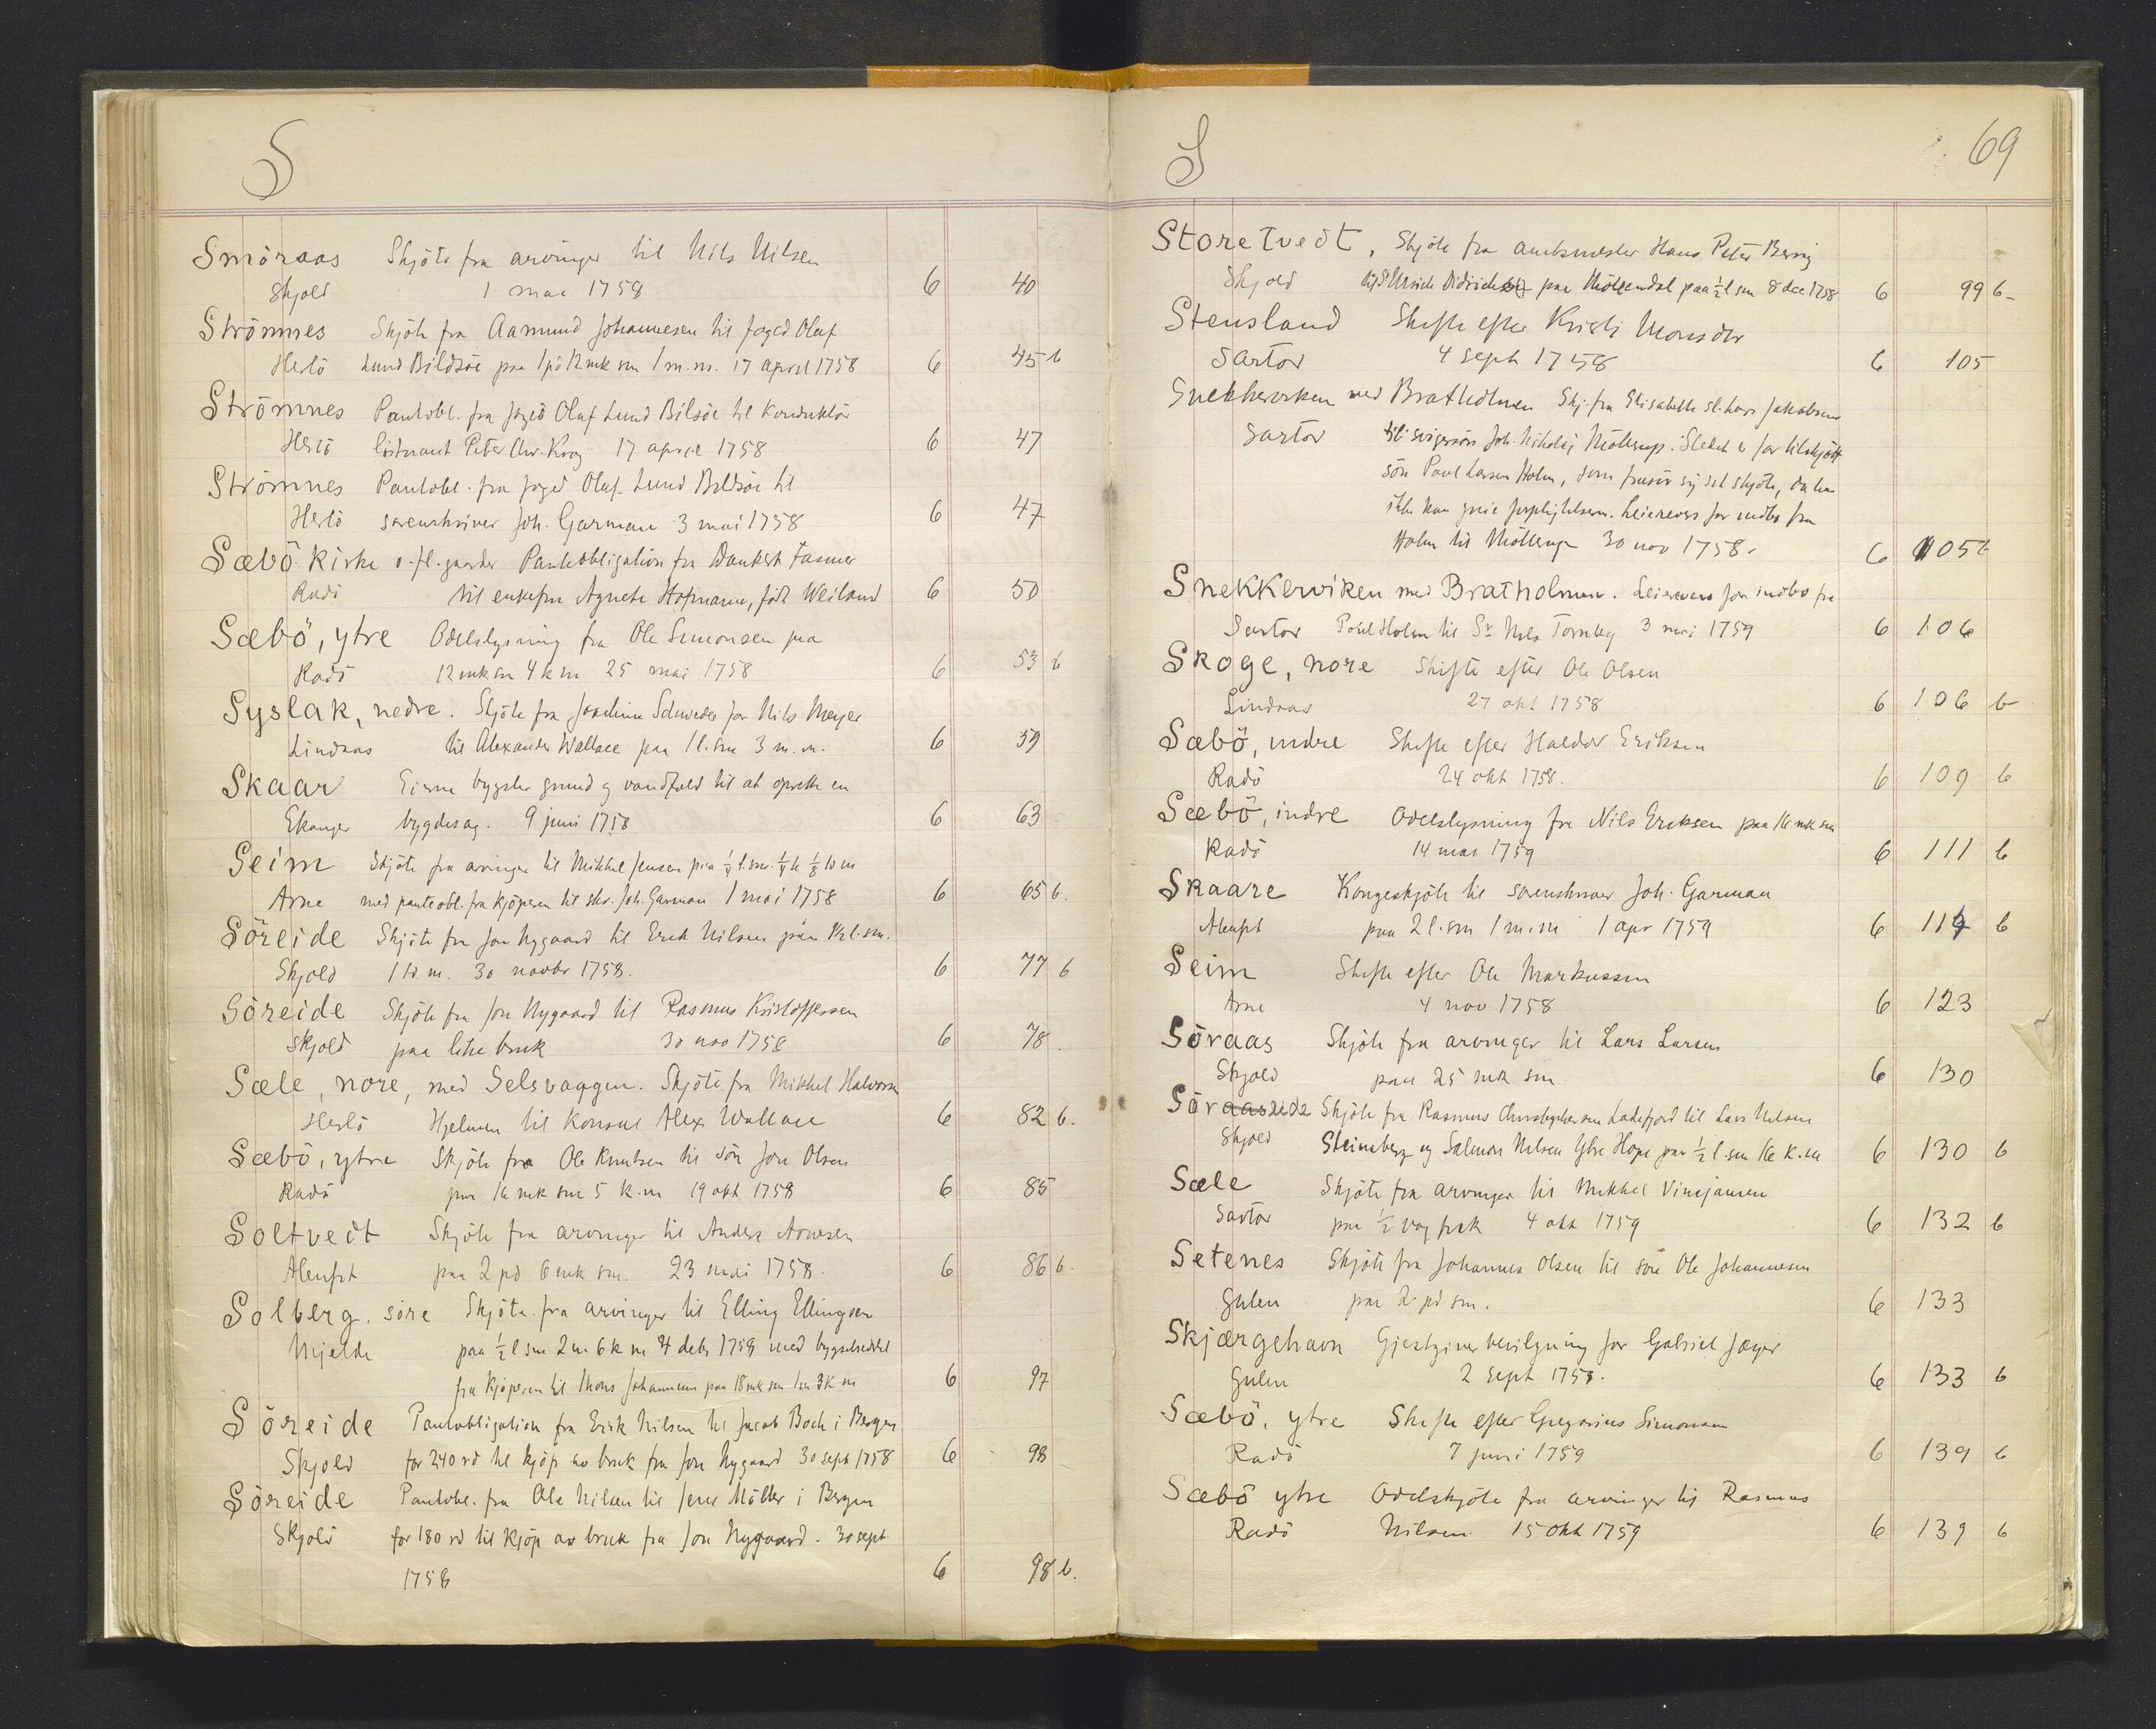 S
Smöraas Skjöte fra arvinger til Nils Nilsen
Skjold 1 mai 1758 6 40
Strömnes Skjöte fra Aamund Johannesen til foged Olaf
Herlö Lund Bildsöe paa 1 pd 12 mk sm 1 m. m. 17 april 1758 6 45 b
Strömnes Pantobl. fra foged Olaf Lund Bilsöe til konduktör
Herlö löitnant Peter Chr. Krog 17 april 1758 6 47
Strömnes Pantobl. fra foged Olaf Lund Bildsöe til
Herlö sorenskriver Joh. Garman 3 mai 1758 6 47
Sæbö kirke o. fl. garder Pantobligation fra Dankert Fasmer
Radö til enkefru Agnete Hofmann, födt Weiland 6 50
Sæbö, ytre Odelslysning fra Ole Simonsen paa
Radö 12 mk sm 4 k m 25 mai 1758 6 53 b
Syslak, nedre. Skjöte fra Joachim Schweder for Nils Meyer
Lindaas til Alexander Wallace paa 1 l. sm 3 m. m. 6 59
Skaar Eierne bygsler grund og vandfald til at oprette en
Ekanger bygdesag. 9 juni 1758 6 63
Seim Skjöte fra arvinger til Mikkel Jensen paa ¼ l. sm. ¼ h ⅛ td m
Arne med panteobl. fra kjöperen til skr. Joh. Garman 1 mai 1758 6 65 b.
Söreide Skjöte fra Jon Nygaard til Erik Nilsen paa ½ l. sm.
Skjold 1 td m. 30 novbr 1758. 6 77 b
Söreide Skjöte fra Jon Nygaard til Rasmus Kristoffersen
Skjold paa litre bruk 30 nov 1758 6 78.
Sæle, nore, med Selsvaagen. Skjöte fra Mikkel Halvorsn
Herlö Hjelmen til konsul Alex Wallace 6 82 b.
Sæbö, ytre Skjöte fra Ole Knutsen til sön Jon Olsen
Radö paa 16 mk sm 5 k. m 19 okt 1758 6 85
Soltvedt Skjöte fra arvinger til Anders Arnesen
Alenfit paa 2 pd 6 mk sm. 23 mai 1758. 6 86 b.
Solberg, söre Skjöte fra arvinger til Elling Ellingsen
Mjelde paa ½ l sm 2 m 6 k m 4 debr 1758 med bygselseddel
fra kjöperen til Mons Johannesen paa 18 mk sm 1 m 3 k m 6 97
Söreide Pantobligation fra Erik Nilsen til Jacob Boch i Bergen
Skjold for 240 rd til kjöp av bruk fra Jon Nygaard 30 sept 1758 6 98
Söreide Pantobl. fra Ole Nilsen til Jens Möller i Bergen
Skjold for 180 rd til kjöp av bruk fra Jon Nygaard. 30 sept
1758 6 98 b.
S 69
Storetvedt, Skjöte fra amtsmester Hans Peter Bernig
Skjold til Ulrich Didrichsen paa Möllendal paa ½ l sm 8 dec 1758 6 99 b
Stensland Skifte efter Kristi Monsdtr
Sartor 4 sept 1758 6 105
Snekkerviken med Bratholmen Skj. fra Elisabeth sl. Lars Jakobsens
Sartor til svigersön Joh. Nikolai Möllerup. Stedet er før tilskjött
sön Paul Larsen Holm, som frasier sig det skjöte, da han
ikke kan greie forpligtelsen. Leierevers for indbo fra
Holm til Möllerup 30 nov 1758. 6 105 b
Snekkerviken med Bratholmen. Leierevers for indbo fra
Sartor Povel Holm til Sr Nils Tornby 3 mai 1759 6 106
Skoge, nore Skifte efter Ole Olsen
Lindaas 27 okt 1758 6 106 b
Sæbö, indre Skifte efter Haldor Eriksen
Radö 24 okt 1758. 6 109 b
Sæbö, indre Odelslysning fra Nils Eriksen paa 16 mk sm
Radö 14 mai 1759 6 111 b
Skaare Kongeskjöte til sorenskriver Joh. Garman
Alenfit paa 2 l. sm 1 m. m 1 apr 1759 6 119 b
Seim Skifte efter Ole Markussen
Arne 4 nov 1758 6 123
Söraas Skjöte fra arvinger til Lars Larsen
Skjold paa 25 mk sm 6 130
Söraaseide Skjöte fra Rasmus Christophersen Ladefjord til Lars Nilsen
Skjold Steinsberg og Salmon Nilsen Ytre Hope paa ½ l. sm 16 k. m 6 130 b
Sæle Skjöte fra arvinger til Mikkel Vincjansen
Sartor paa ½ vog fisk 4 okt 1759 6 132 b
Setenes Skjöte fra Johannes Olsen til sön Ole Johannesen
Gulen paa 2 pd sm. 6 133
Skjærgehavn Gjestgiverbevilgning for Gabriel Jæger
Gulen 2 sept 1758. 6 133 b
Sæbö, ytre Skifte efter Gregorius Simonsen
Radö 7 juni 1759 6 139 b
Sæbö ytre Odelskjöte fra arvinger til Rasmus
Radö Nilsen 15 okt 1759 6 139 b